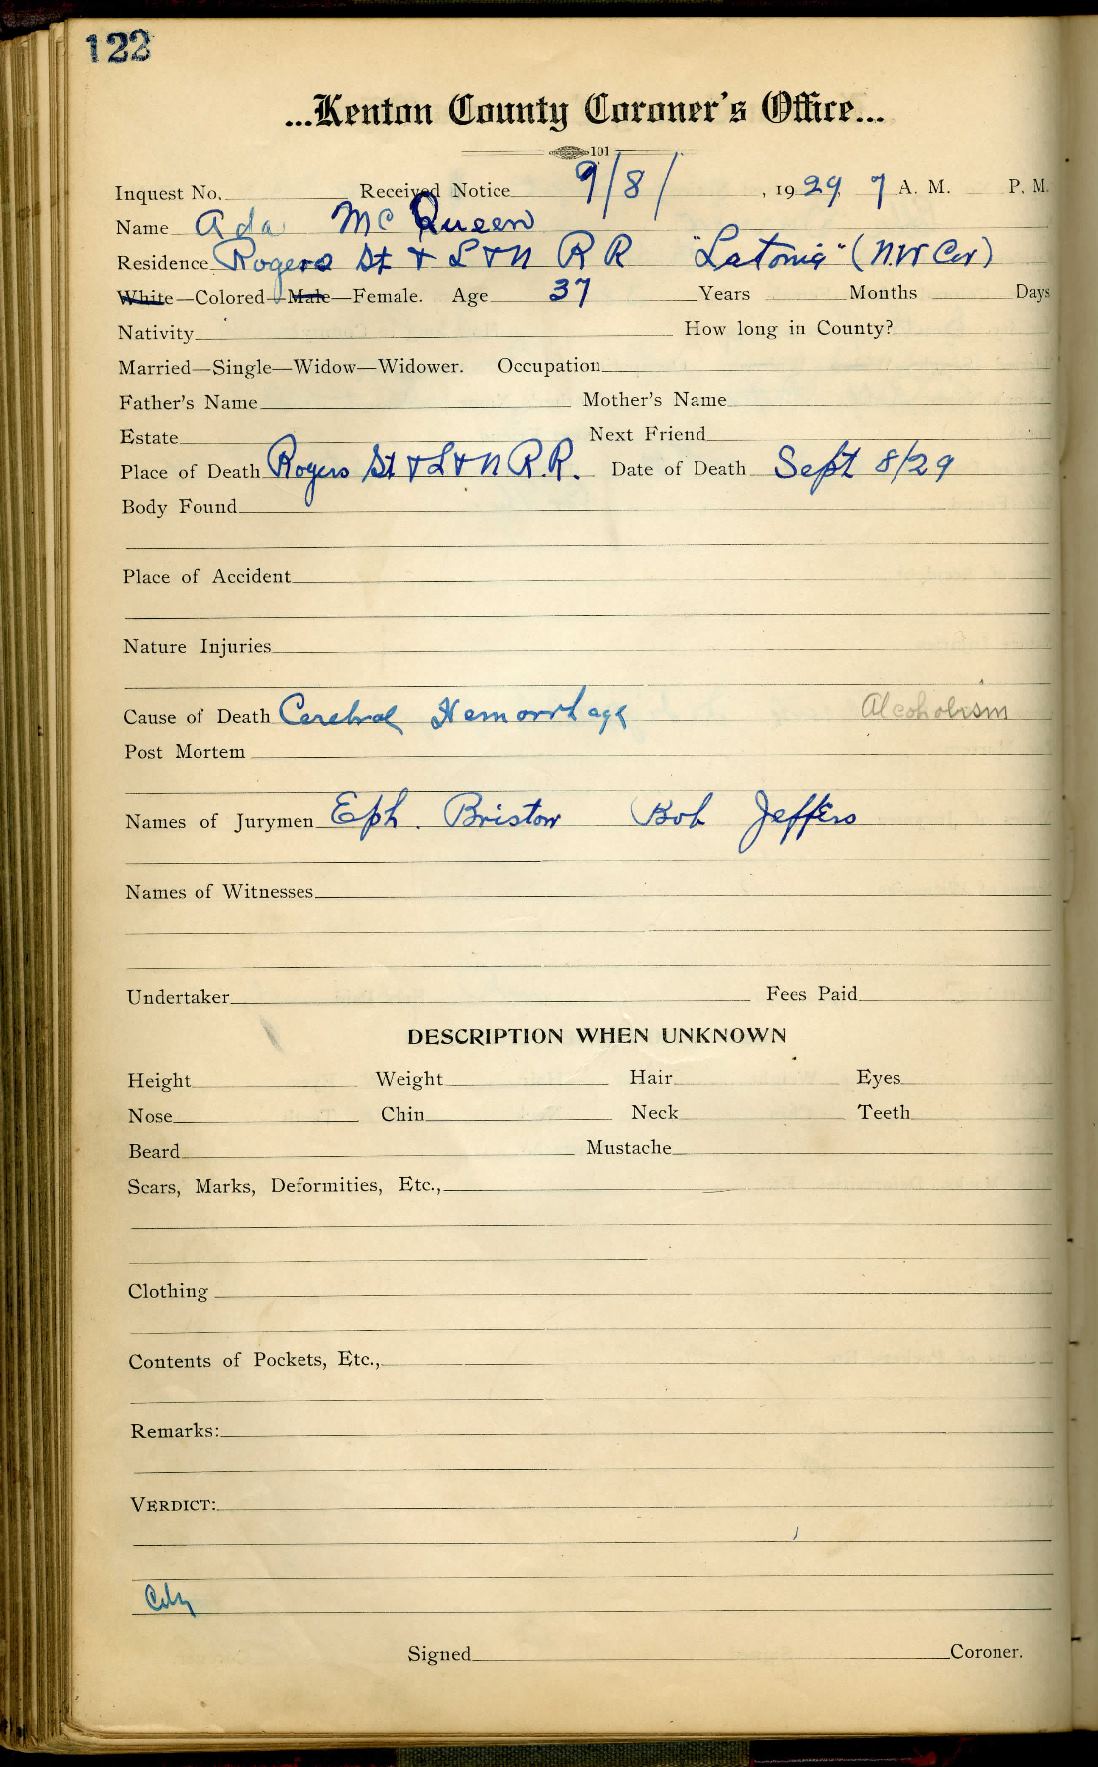 122
...Kenton County Coroner's Office...
101
Inquest No. Received Notice 9/8/ , 1929, 7 A. M. P. M.
Name Ada McQueen
Residence Rogers St & L & N R R "Latonia" (N.W Cor)
White—Colored—Male—Female. Age 37 Years Months Days
Nativity How long in County?
Married—Single—Widow—Widower. Occupation
Father's Name Mother's Name
Estate Next Friend
Place of Death Rogers St & L & N R.R. Date of Death Sept 8/29
Body Found
Place of Accident
Nature Injuries
Cause of Death Cerebral Hemorrhage Alcoholism
Post Mortem
Names of Jurymen Eph. Bristow Bob Jeffers
Names of Witnesses
Undertaker Fees Paid
DESCRIPTION WHEN UNKNOWN
Height Weight Hair Eyes
Nose Chin Neck Teeth
Beard Mustache
Scars, Marks, Deformities, Etc.,
Clothing
Contents of Pockets, Etc.,
Remarks:
VERDICT:
City
Signed Coroner.